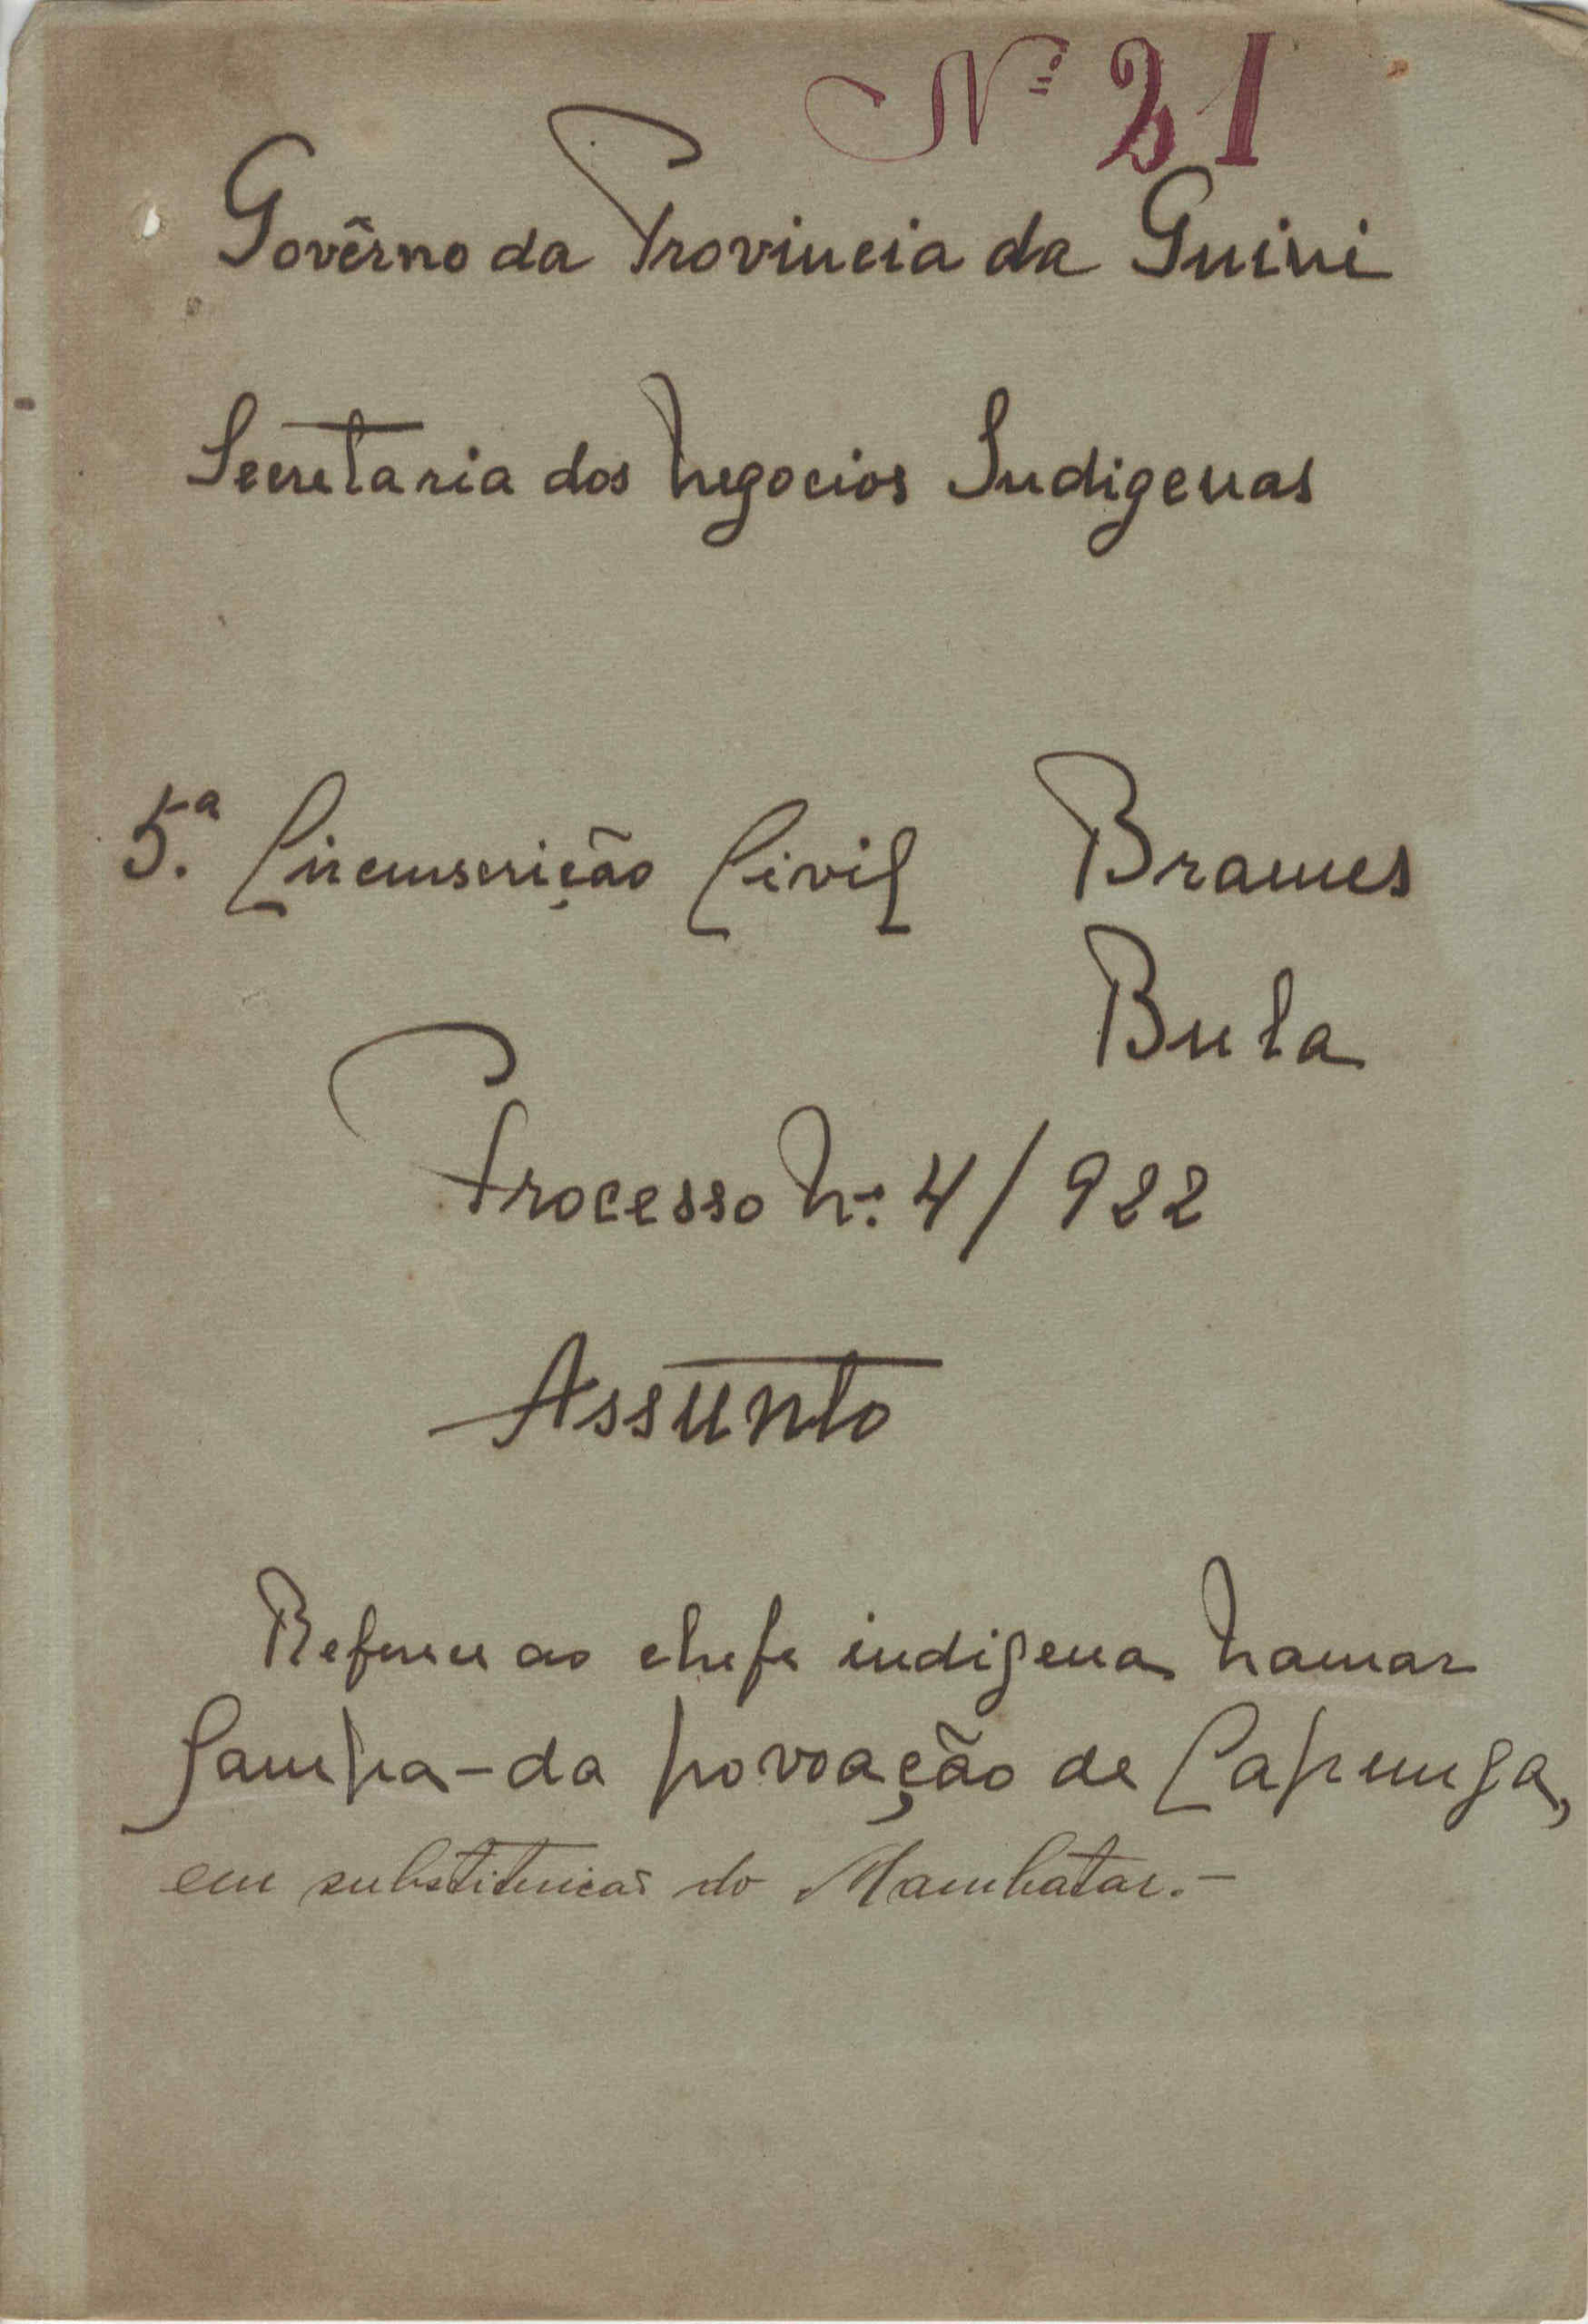 Nº 21
Govêrno da Provincia da Guiné
Secretaria dos Negocios Indigenas
5.ª Circunscrição Civil Brames
Bula
Processo Nº 4/922
Assunto
Referente ao chefe indigena Namar
Sampa - da povoação de Capunga,
em substituicão do Mambatar.-